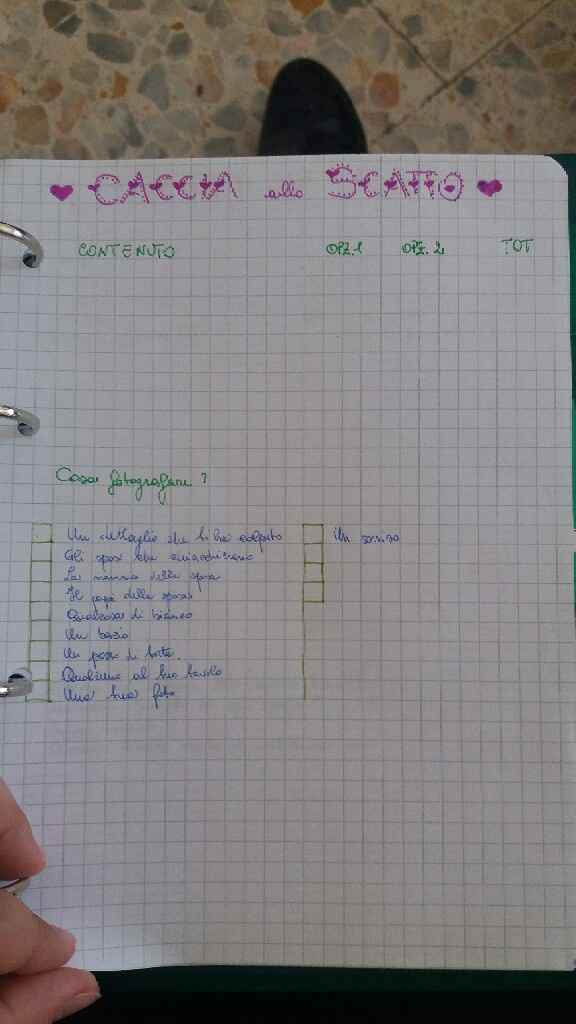 CACCIA allo SCATTO
CONTENUTO OPZ.1 OPZ.2 TOT
Cosa fotografare?
Un dettaglio che ti ha colpito
Un sorriso
Gli sposi che
La mamma della sposa
Il papà della sposa
Qualcosa di bianco
Un bacio
Un di torta.
Qualcuno al tuo tavolo
Una tua foto